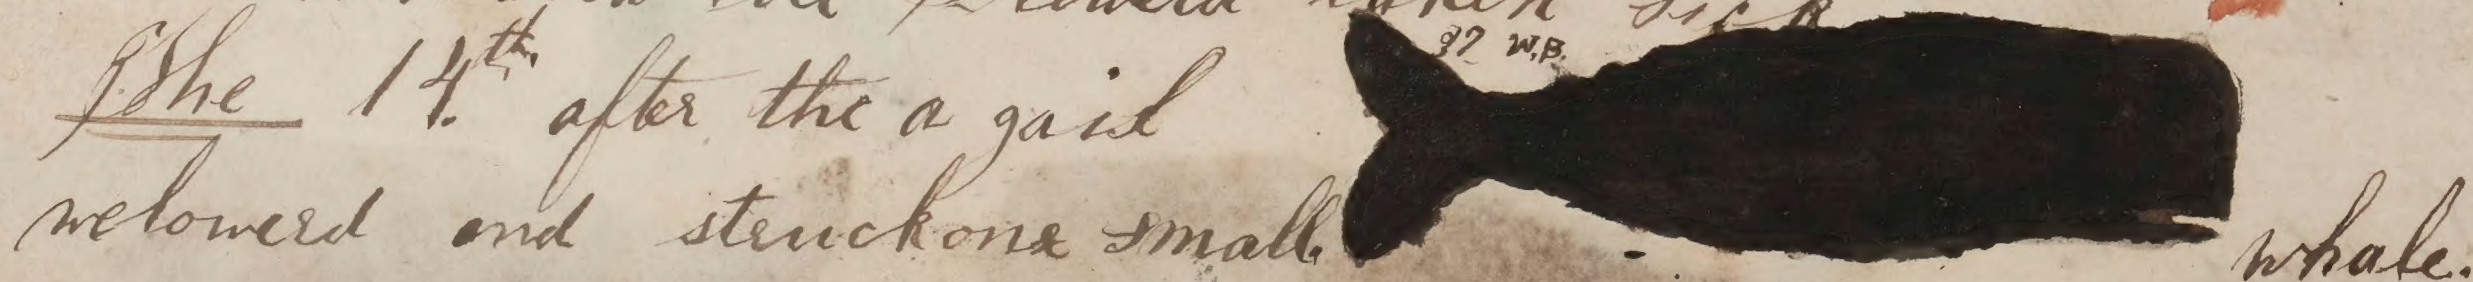 taken sick
The 14th. after the a gail
97 W.B.
welowerd and struck one small whale.